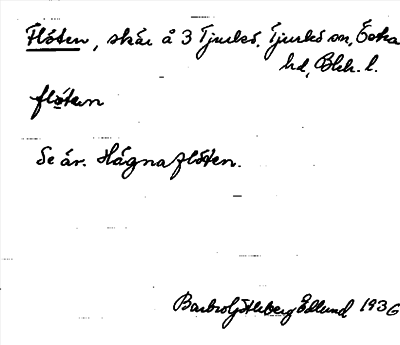 Flöten, skär å 3 Tjurkö, Tjurkö sn, Östra
hd, Blek. l.
flö̀ten
Se äv. Hågnaflöten.
Barbro Götheberg Edlund 1936